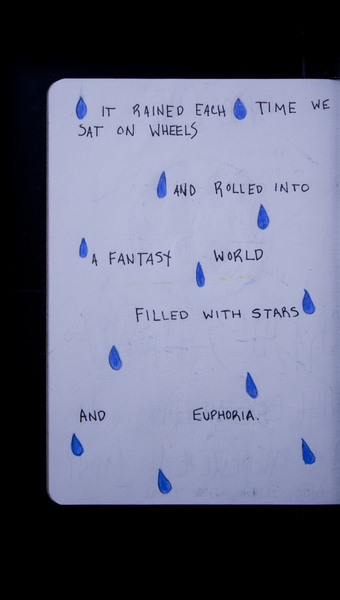 IT RAINED EACH TIME WE
SAT ON WHEELS
AND ROLLED INTO
A FANTASY WORLD
FILLED WITH STARS
AND EUPHORIA.